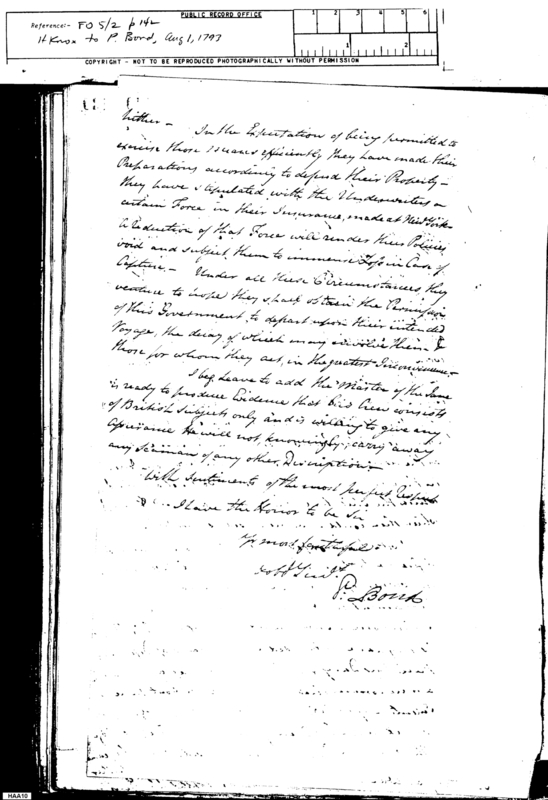 PUBLIC RECORD OFFICE
Reference:- FO 5/2 p 142
H Knox to P. Bond, Aug 1, 1793
1 2 3 4 5 6
1 2
COPYRIGHT - NOT TO BE REPRODUCED PHOTOGRAPHICALLY WITHOUT PERMISSION
hither - In the Expectation of being permitted to
exercise those Means efficiently they have made their
Preparations accordingly to defend their Property -
they have stipulated with the Underwriters a
certain Force in their Insurance, made at New York -
a Reduction of that Force will render these Policies
void and subject them to immense Loss in Case of
Capture. - Under all these Circumstances, they
venture to hope they shall obtain the Permission
of this Government to depart upon their intended
Voyage, the delay of which may involve them &
those for whom they act, in the greatest Inconvenience. -
I beg Leave to add the Master of the Jane
is ready to produce Evidence that his Crew consists
of British Subjects only and is willing to give any
Assurance He will not, knowingly, carry away
any Seaman of any other Description -
With Sentiments of the most perfect Respect
I have the Honor to be Sir
Yr most faithful
obdt Servt
P. Bond
HAA10